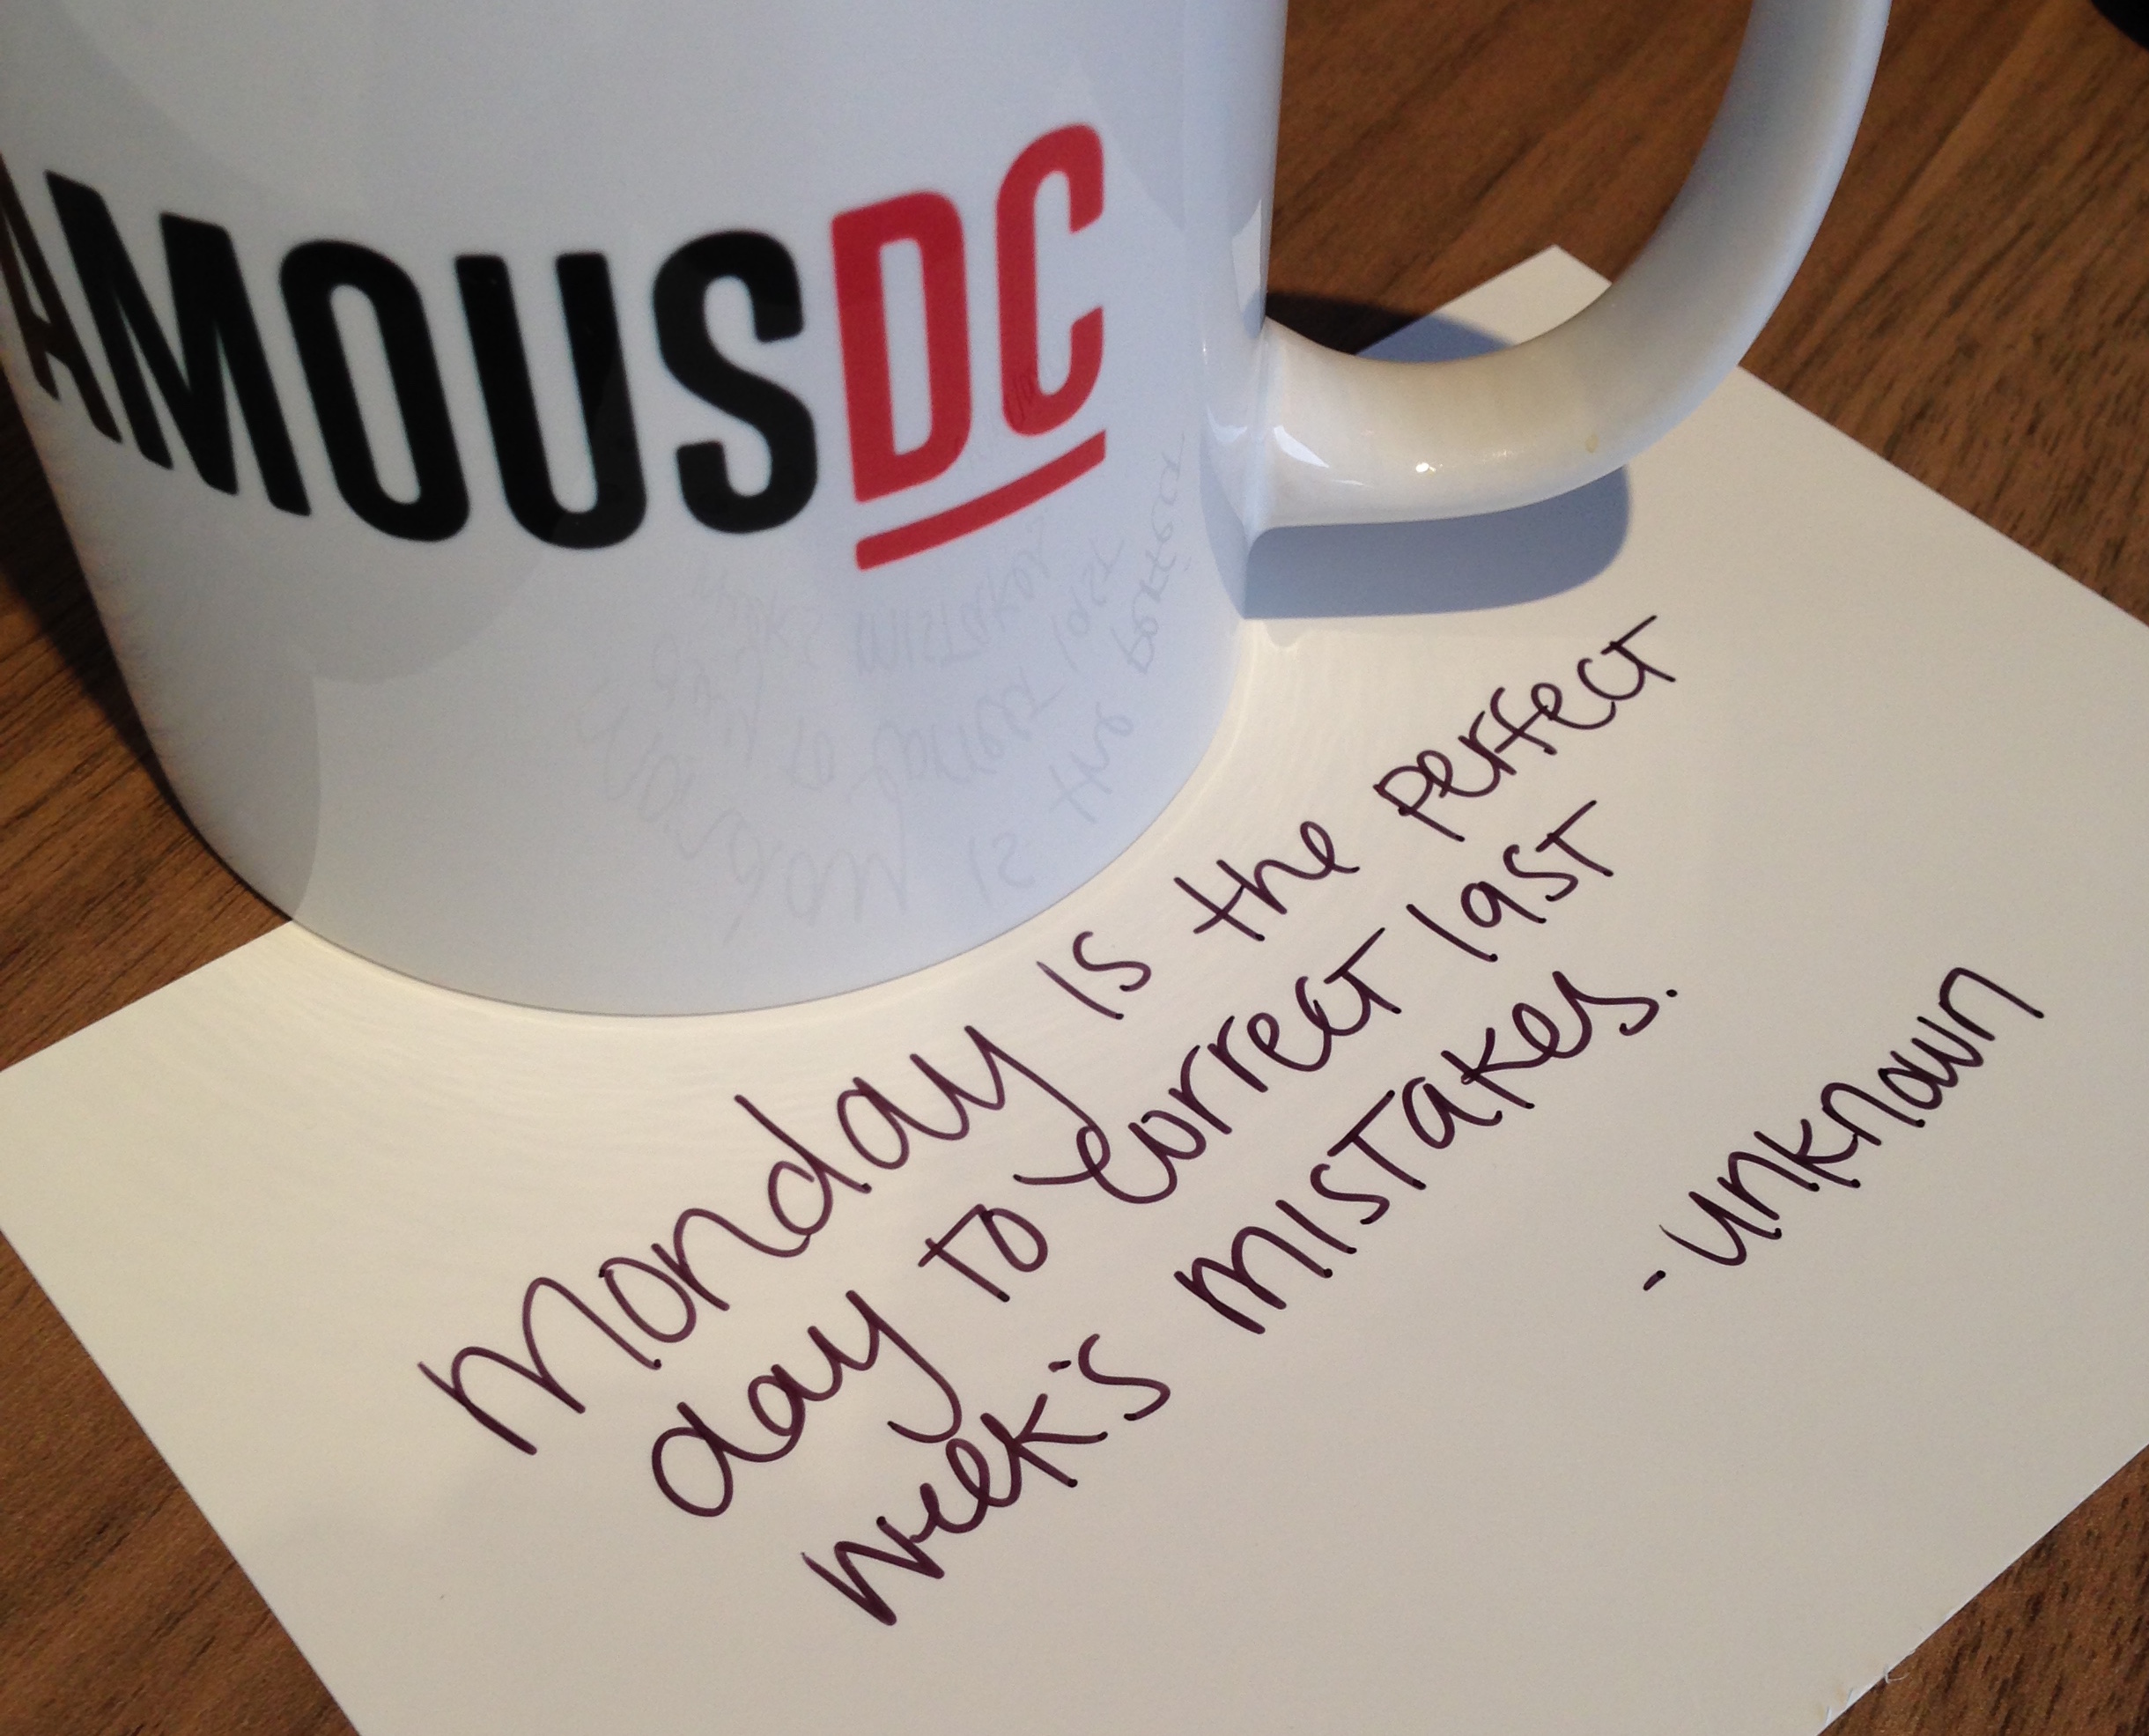 AMOUSDC
Monday is the perfect
day to correct last
week's mistakes.
- unknown